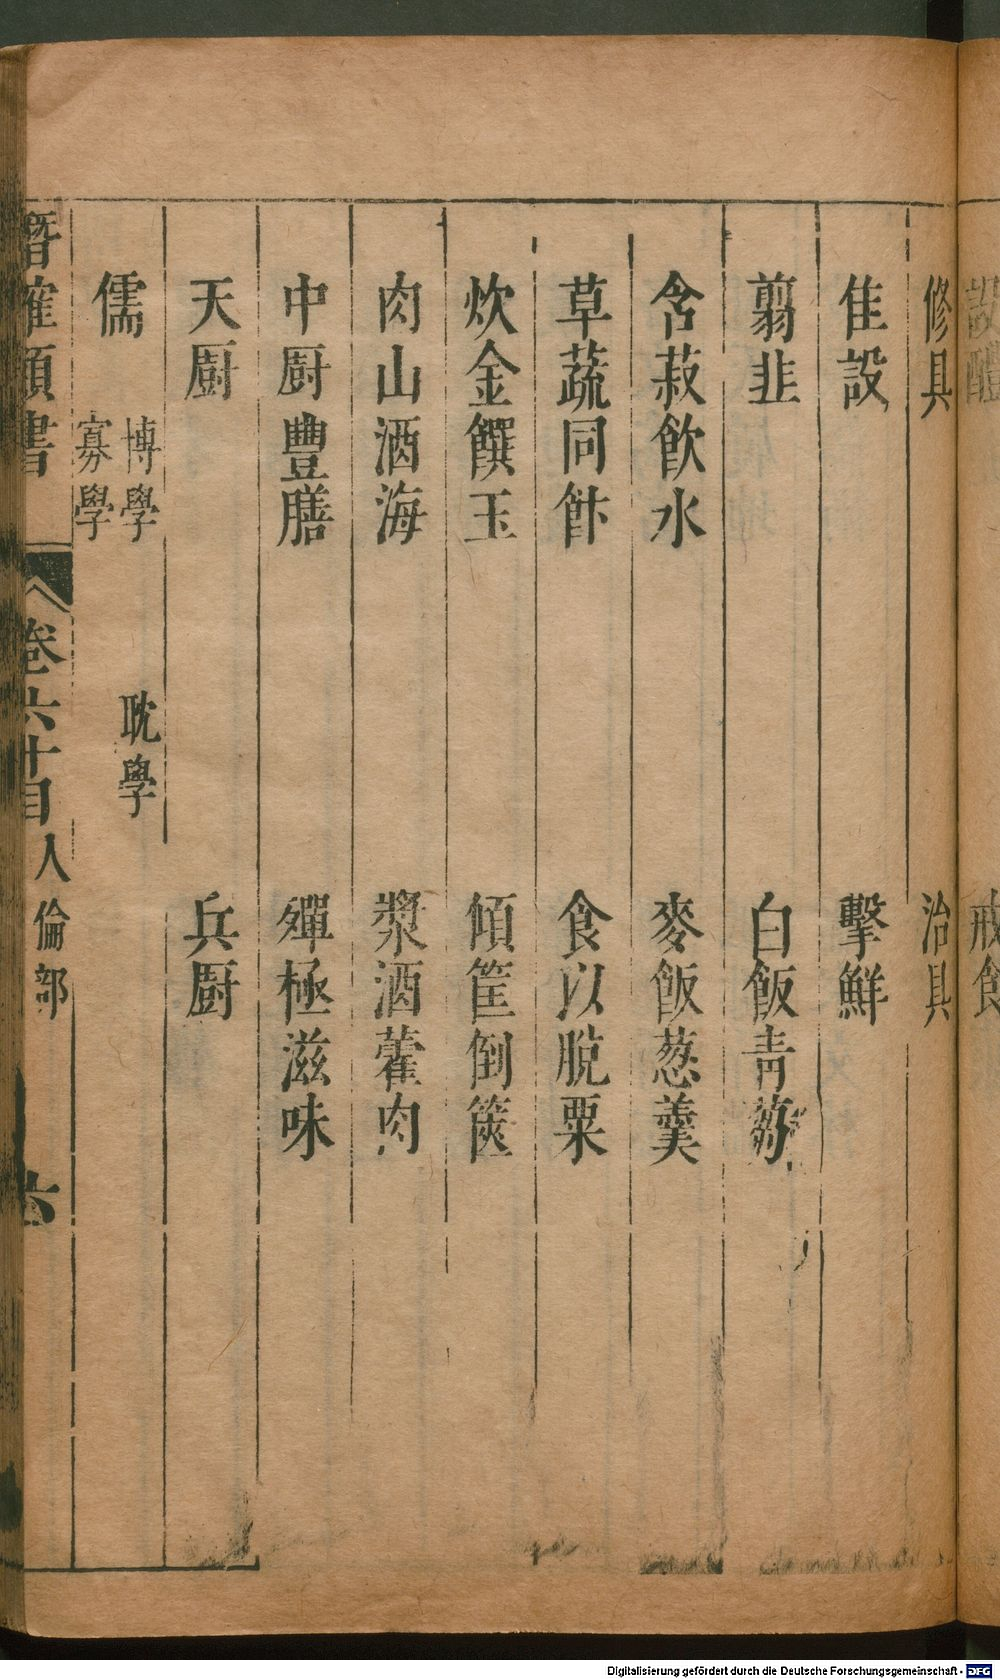 修具 治具
隹設 擊鮮
翦韭 白飯青蒭
含菽飲水 麥飯葱羹
草蔬同飰 食以脫粟
炊金饌玉 傾筐倒篋
肉山酒海 漿酒藿肉
中厨豐膳 殫極滋味
天厨 兵厨
儒 博學 耽學
寡學
潛確類書 卷六十目 人倫部 六
戒食
Digitalisierung gefördert durch die Deutsche Forschungsgemeinschaft - DFG